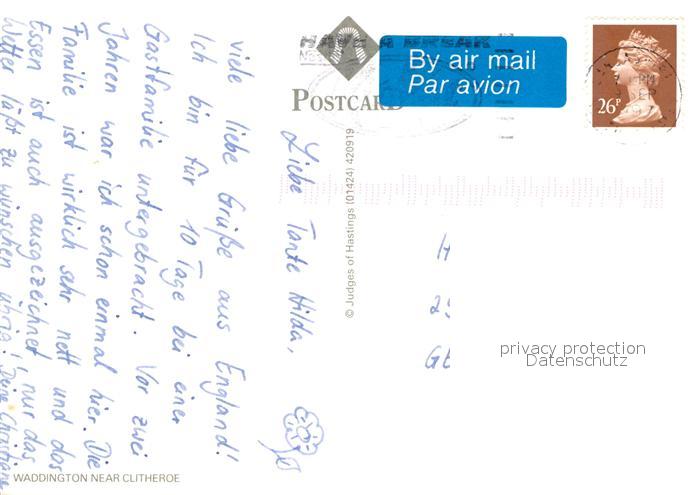 Liebe Tante Hilda,
viele liebe Grüße aus England!
Ich bin für 10 Tage bei einer
Gastfamilie untergebracht. Vor zwei
Jahren war ich schon einmal hier. Die
Familie ist wirklich sehr nett und das
Essen ist auch ausgezeichnet, nur das
Wetter läßt zu wünschen übrig!
Deine Christiane
WADDINGTON NEAR CLITHEROE
POSTCARD
© Judges of Hastings (01424) 420919
HAVE A BREAK
By air mail
Par avion
26P
PM
SEP
H
GE
privacy protection
Datenschutz